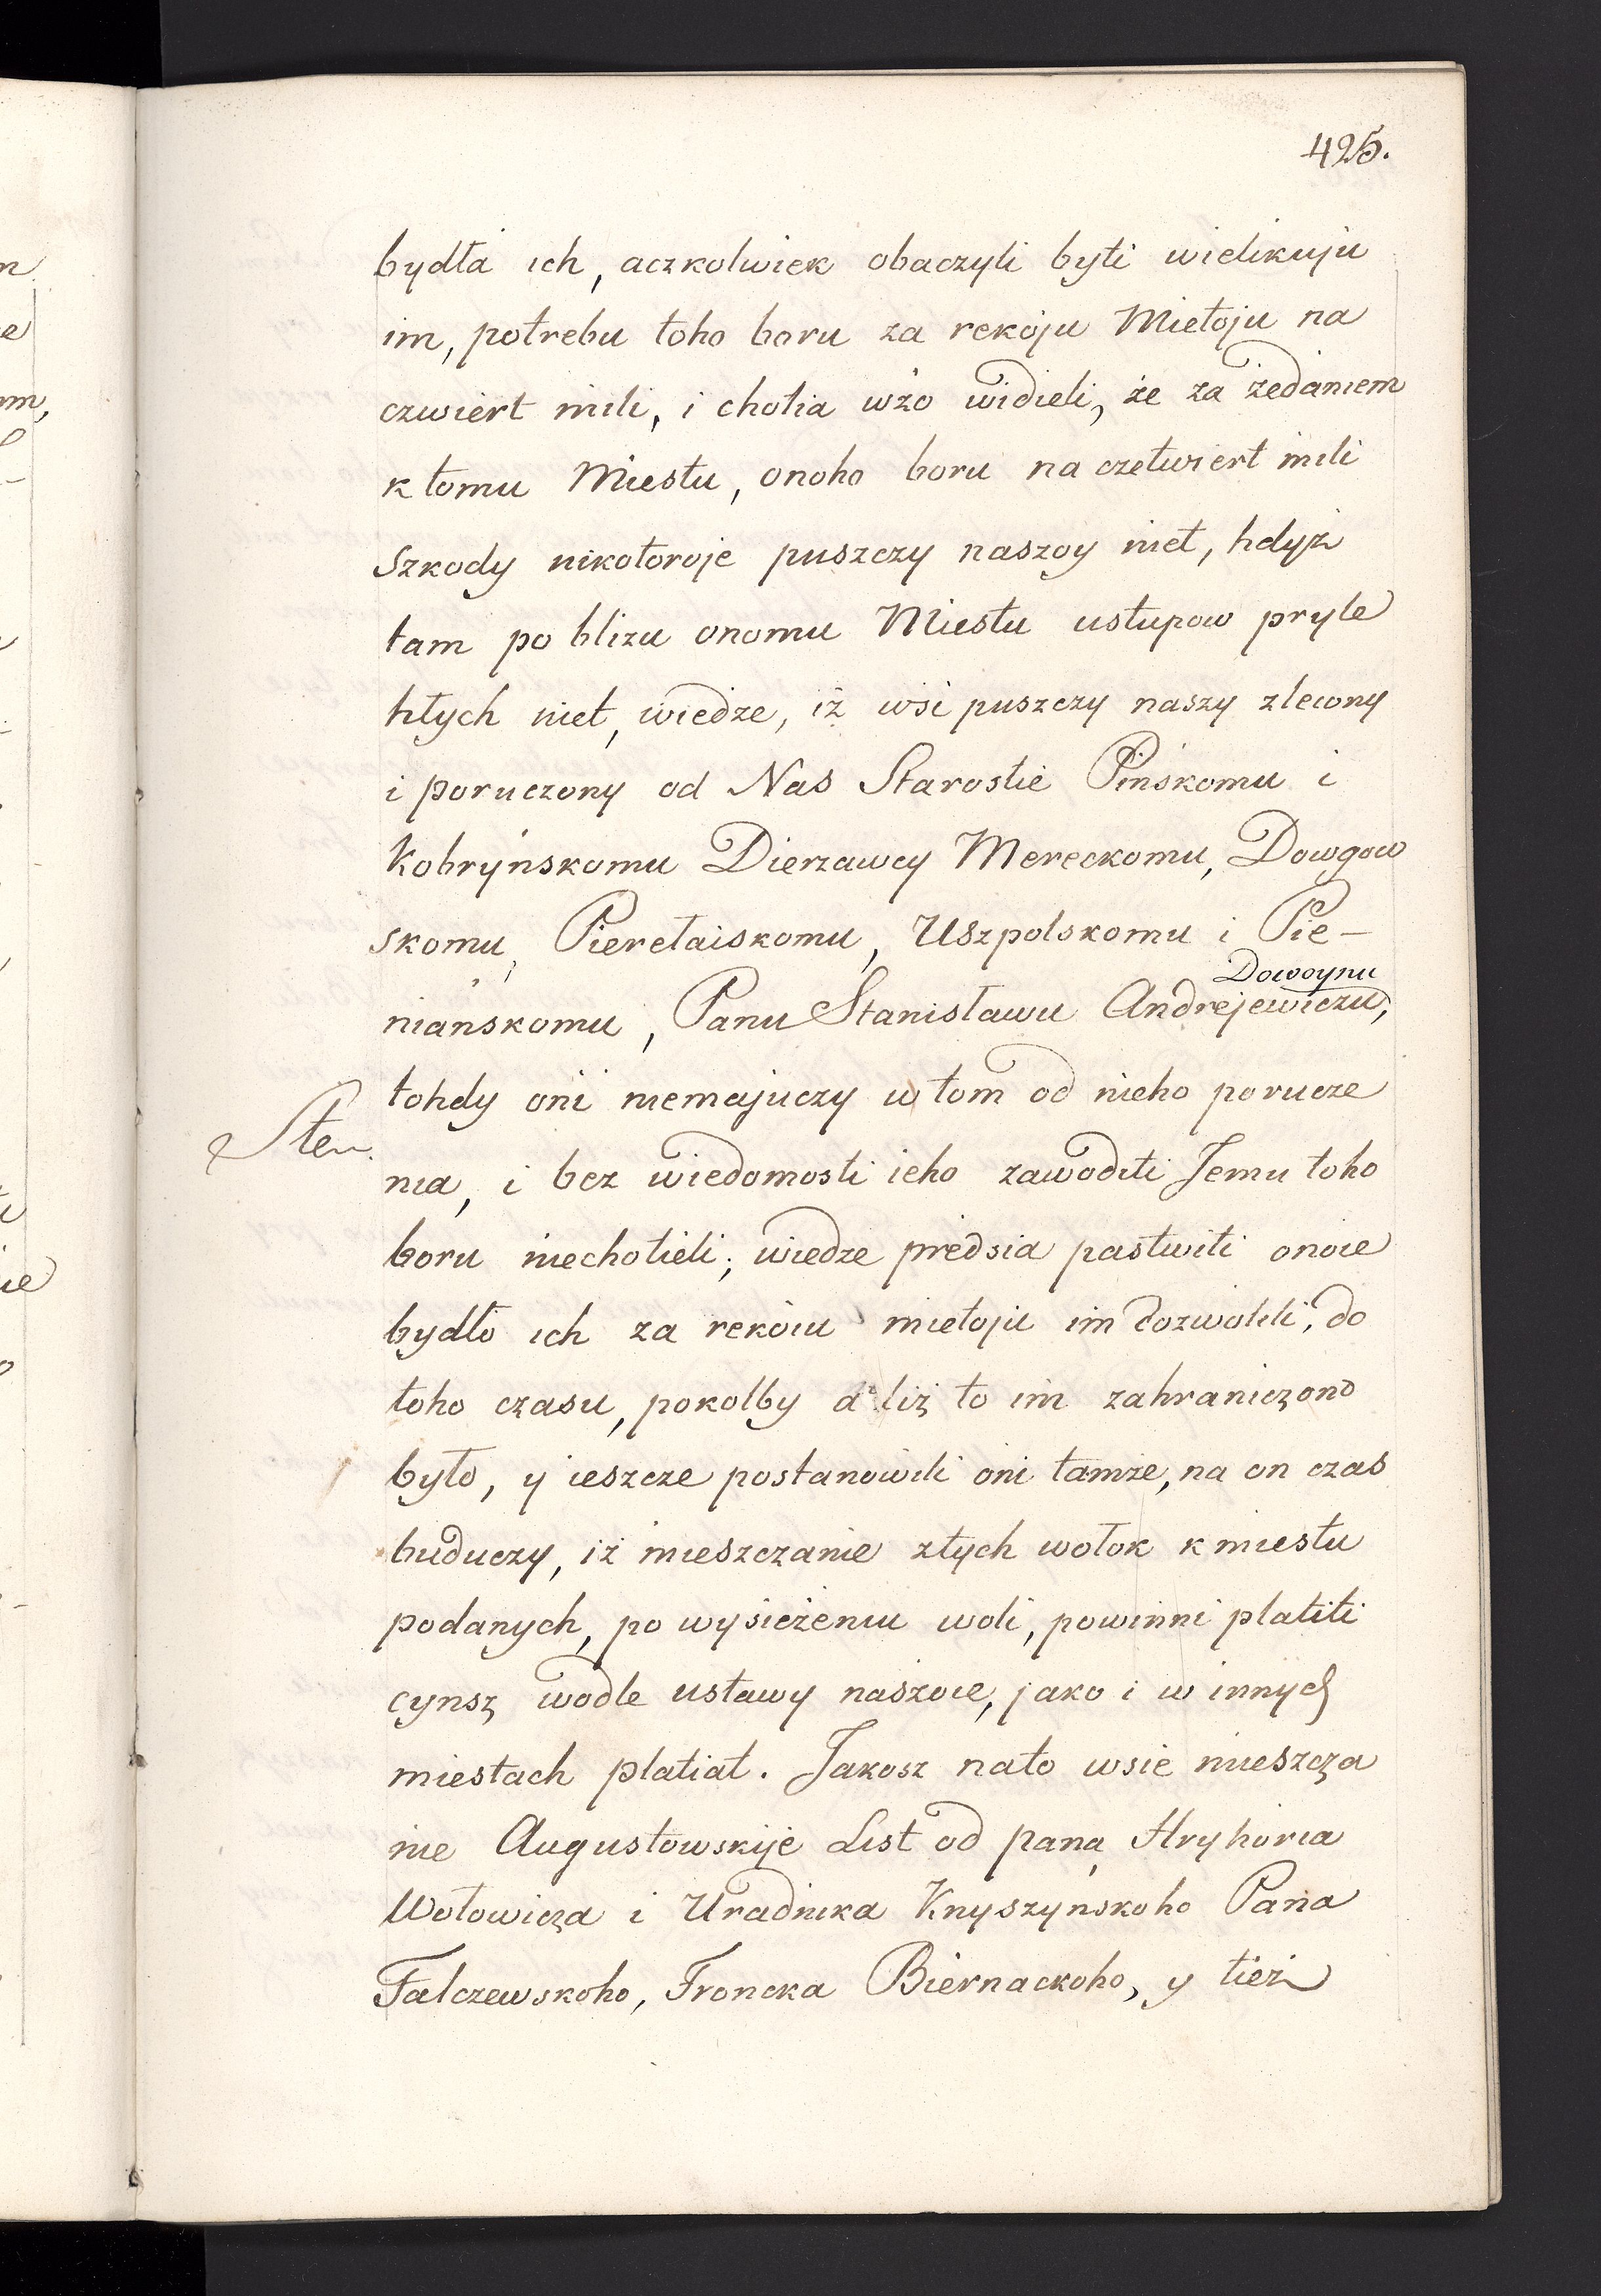 425.
bydła ich, aczkolwiek obaczyli byli wielikuju
im, potrebu toho boru za rekoju Mietoju na
czwiert mili, i chotia wżo widieli, że za żedaniem
k tomu Miestu, onoho boru na czetwiert mili
szkody nikotoroje puszczy naszoy niet, hdyż
tam po blizu onomu Miestu ustupow pryle
hłych niet, wiedze, iż wsi puszczy naszy zlecony
i poruczony od Nas Starostie Pinskomu i
Kobrynskomu Dierzawcy Mereckomu, Dowgow
skomu, Pieretaiskomu, Uszpolskomu i Pie-
Dowoynu
nianskomu, Panu Stanisławu Andrejewiczu,
tohdy oni niemajuczy w tom od nieho porucze
Sten.
nia, i bez wiedomosti ieho zawoditi Jemu toho
boru niechotieli; wiedze predsia pastwiti onoie
bydło ich za rekoiu mietoju im dozwolili, do
toho czasu, pokolby aliż to im zahraniczono
było, y ieszcze postanowili oni tamże, na on czas
buduczy, iż mieszczanie złych wołok k miestu
podanych, po wysieżeniu woli, powinni platiti
cynsz wodle ustawy naszoie, jako i w innych
miestach platiat. Jakosz nato wsie mieszcza
nie Augustowskije List od pana Hryhoria
Wołowicza i Uradnika Knyszynskoho Pana
Falczewskoho, Froncka Biernackoho, y tież